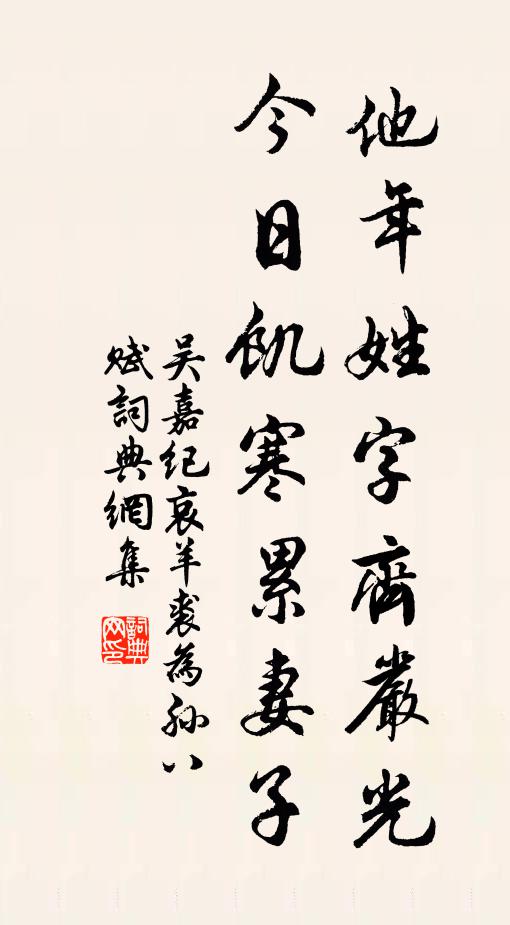 他年姓字齊嚴光
今日飢寒累妻子
吴嘉纪哀羊裘為孙八
赋詞典網集
詞典网印